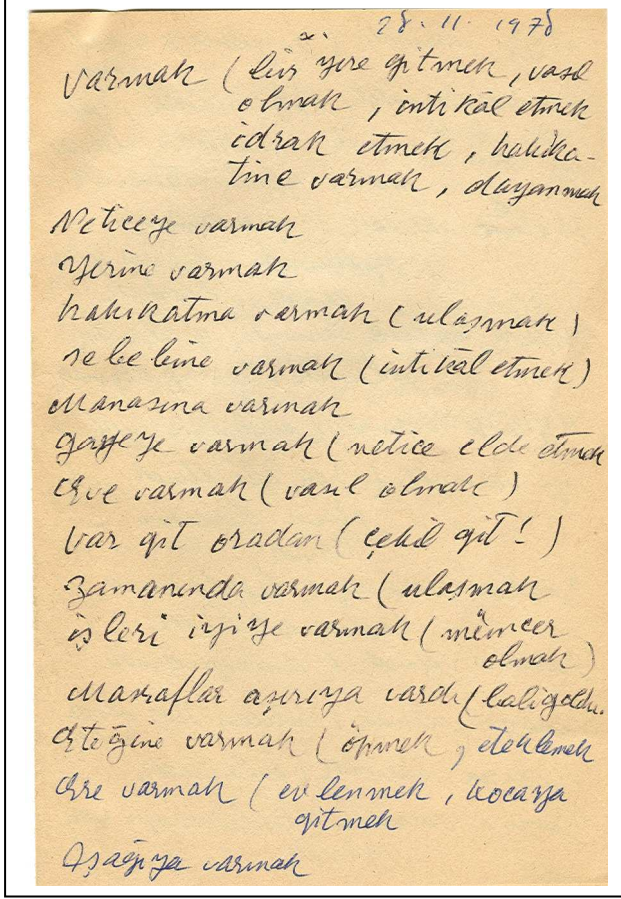 28. 11. 1978
Varmak ( bir yere gitmek, vasıl
olmak, intikâl etmek
idrak etmek, hakika-
tine varmak, dayanmak
Neticeye varmak
Yerine varmak
hakikatına varmak ( ulaşmak )
sebebine varmak ( intikâl etmek )
Manasına varmak
gayeye varmak ( netice elde etmek
eve varmak ( vasıl olmak )
Var git oradan ( çekil git! )
Zamanında varmak ( ulaşmak
işleri iyiye varmak ( müncer
olmak )
Masraflar aşırıya vardı ( baliğ oldu.
Eteğine varmak ( öpmek, eteklemek
Ere varmak ( evlenmek, kocaya
gitmek
Aşağıya varmak